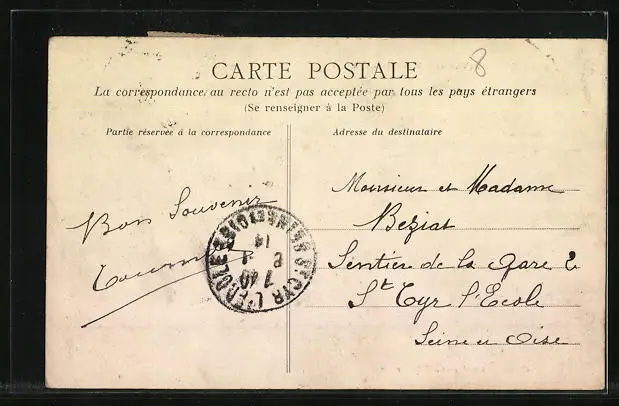 8
CARTE POSTALE
La correspondance au recto n'est pas acceptée par tous les pays étrangers
(Se renseigner à la Poste)
Partie réservée à la correspondance
Adresse du destinataire
Bon Souvenir
Monsieur et Madame
Beziat
Sentier de la Gare 2
St Cyr l'Ecole
Seine et Oise
ST CYR L'ECOLE SEINE ET OISE
7 40